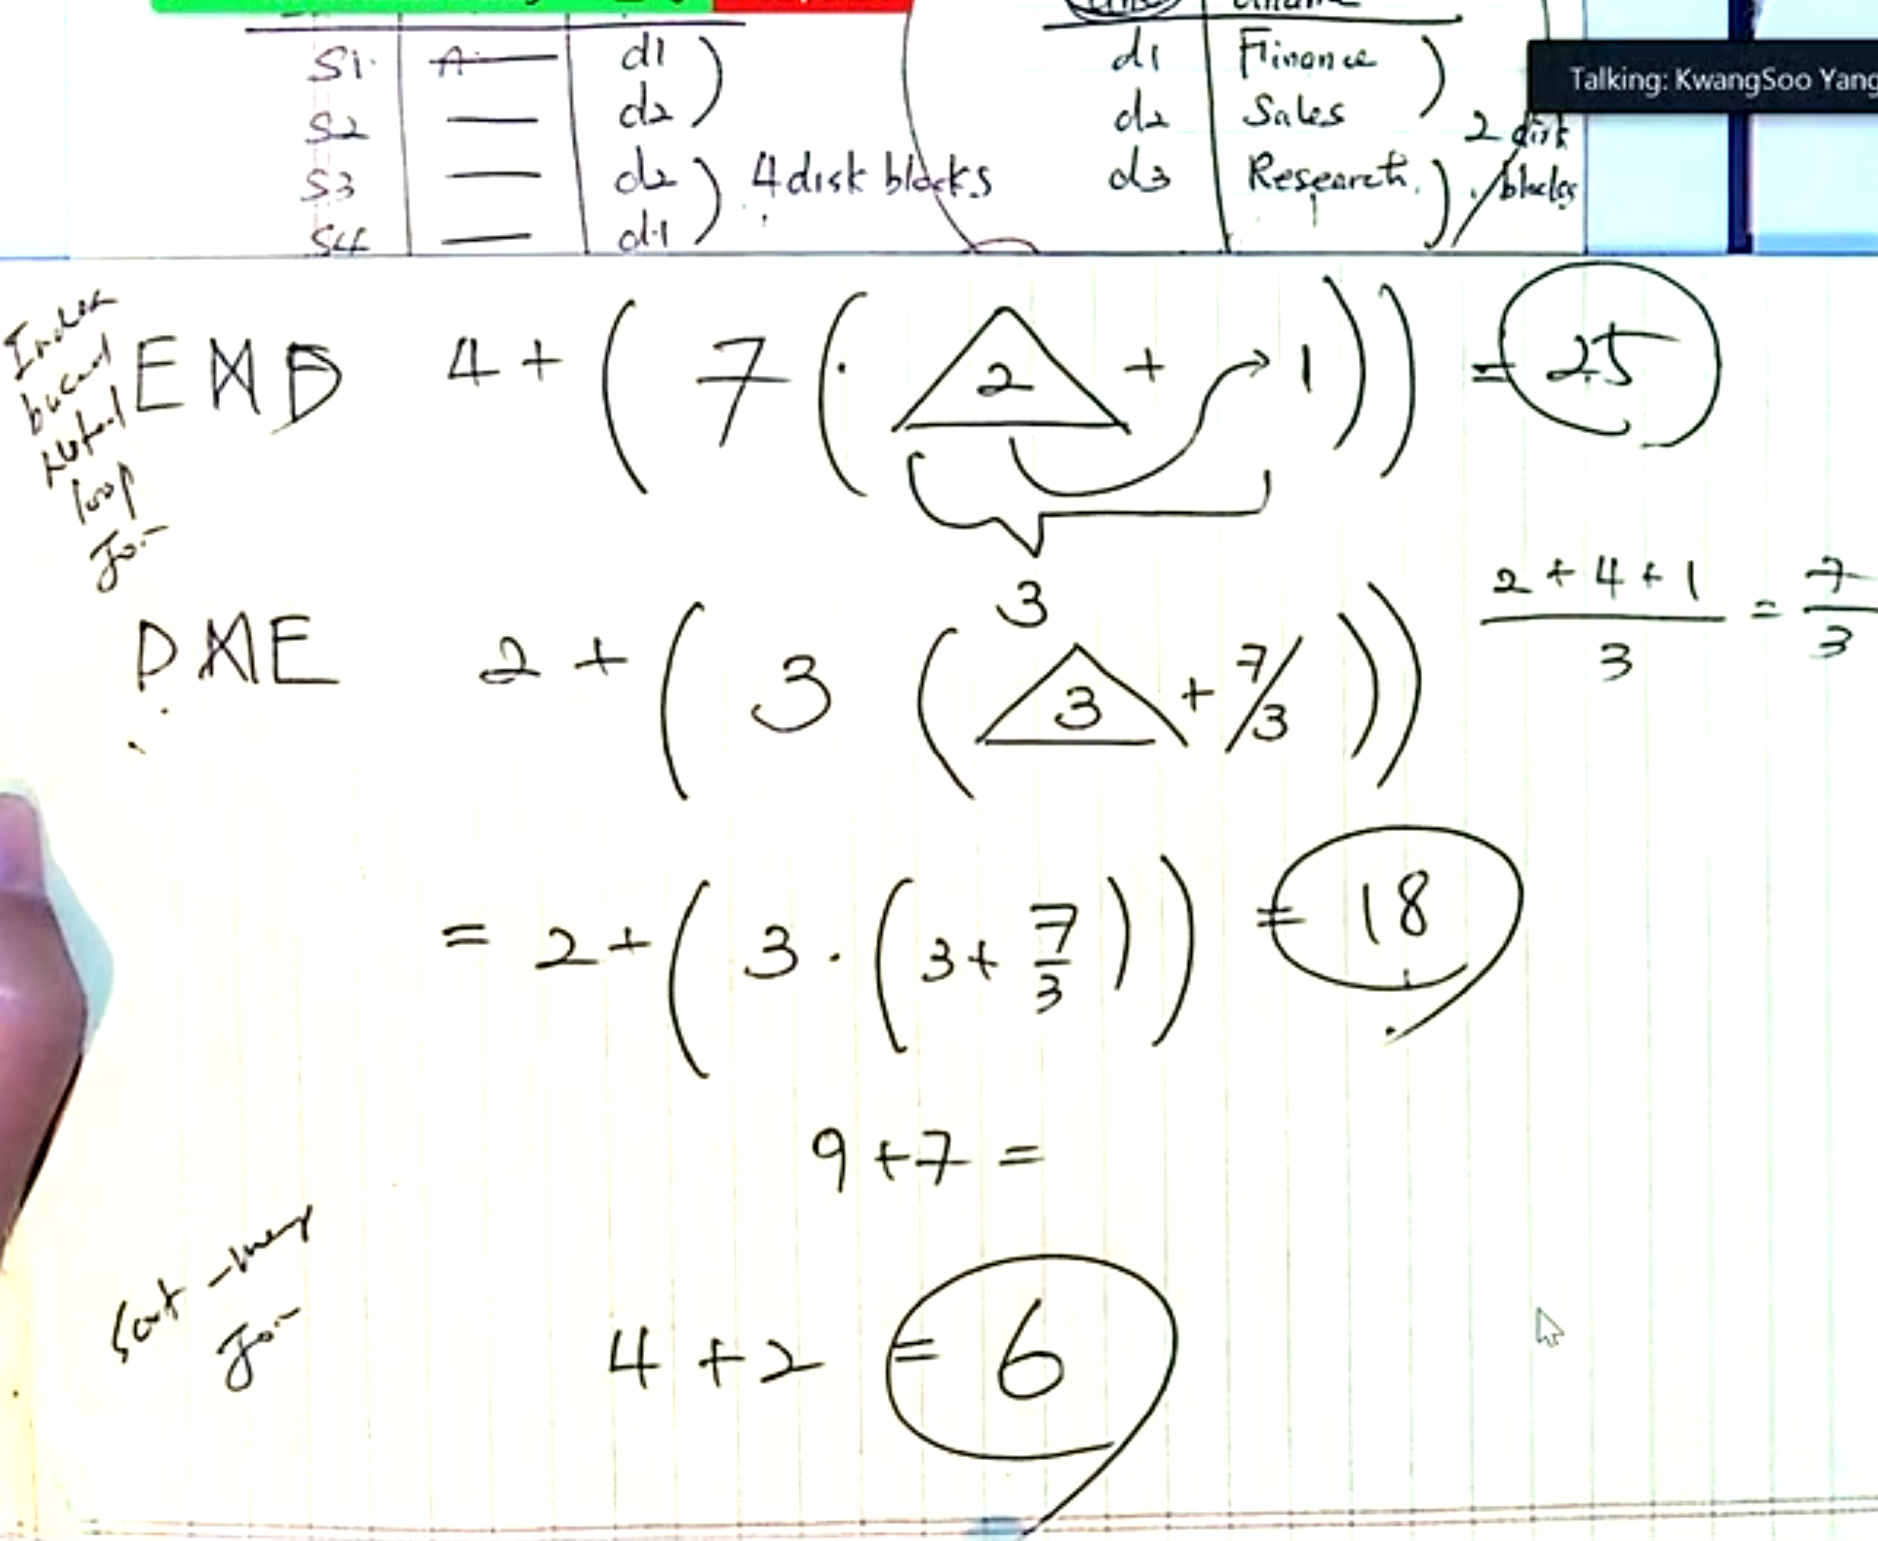 S1. A d1
S2 d2
S3 d2 4 disk blocks
S4 d1
d1 Finance
d2 Sales
d3 Research
2 disk
blocks
Talking: KwangSoo Yang
Index
based
nested
loop
Join
E⋈D 4 + ( 7 ( 2 + 1 ) ) = 25
3
D⋈E 2 + ( 3 ( 3 + 7/3 ) )
2 + 4 + 1 / 3 = 7 / 3
= 2 + ( 3 · ( 3 + 7/3 ) ) = 18
9 + 7 =
Sort-merge
Join
4 + 2 = 6